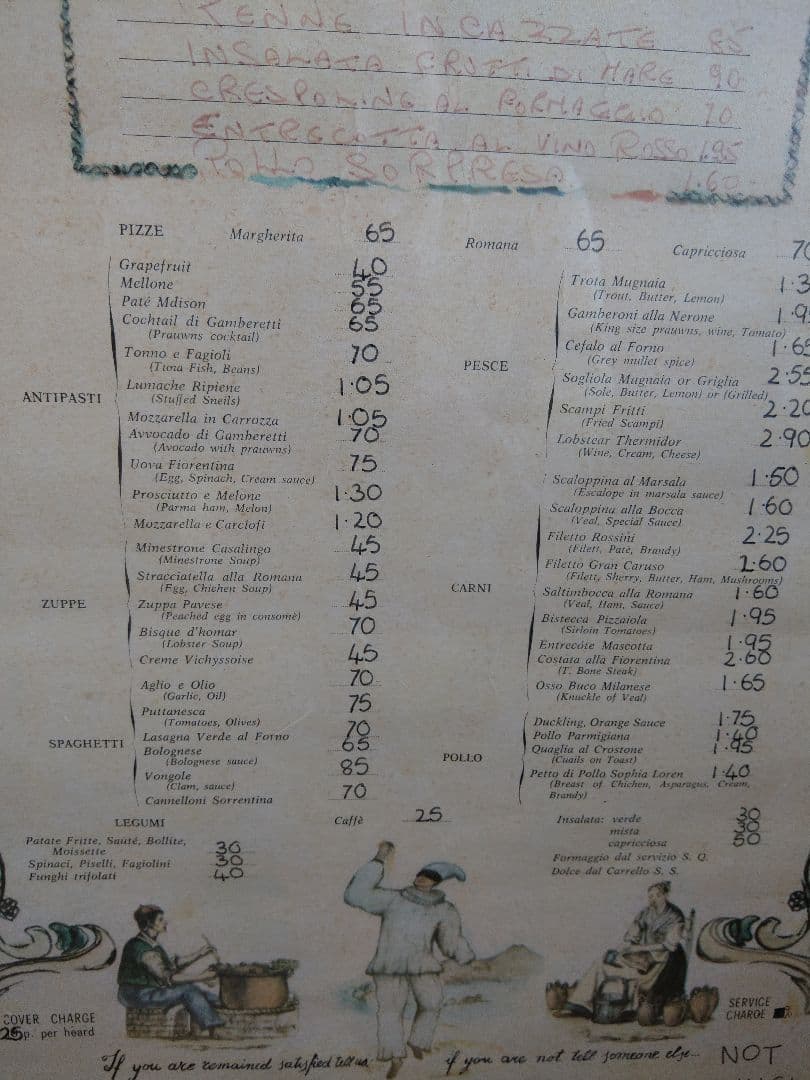 PENNE INCAZZATE 85
INSALATA FRUTTI DI MARE 90
CRESPOLINE AL FORMAGGIO 70
ENTRECOTTA AL VINO ROSSO 1.95
POLLO SORPRESA 1.60
PIZZE Margherita 65 Romana 65 Capricciosa 70
ANTIPASTI
Grapefruit 40
Mellone 55
Paté Mdison 65
Cochtail di Gamberetti 65
(Prauwns cocktail)
Tonno e Fagioli 70
(Tuna Fish, Beans)
Lumache Ripiene 1·05
(Stuffed Sneils)
Mozzarella in Carrozza 1·05
Avvocado di Gamberetti 70
(Avocado with prauwns)
Uova Fiorentina 75
(Egg, Spinach, Cream sauce)
Prosciutto e Melone 1·30
(Parma ham, Melon)
Mozzarella e Carciofi 1·20
ZUPPE
Minestrone Casalingo 45
(Minestrone Soup)
Stracciatella alla Romana 45
(Egg, Chichen Soup)
Zuppa Pavese 45
(Peached egg in consomè)
Bisque d'homar 70
(Lobster Soup)
Creme Vichyssoise 45
SPAGHETTI
Aglio e Olio 70
(Garlic, Oil)
Puttanesca 75
(Tomatoes, Olives)
Lasagna Verde al Forno 70
Bolognese 65
(Bolognese sauce)
Vongole 85
(Clam, sauce)
Cannelloni Sorrentina 70
PESCE
Trota Mugnaia 1·3
(Trout, Butter, Lemon)
Gamberoni alla Nerone 1·9
(King size prauwns, wine, Tomato)
Cefalo al Forno 1·65
(Grey mullet spice)
Sogliola Mugnaia or Griglia 2·55
(Sole, Butter, Lemon) or (Grilled)
Scampi Fritti 2·20
(Fried Scampi)
Lobstear Thermidor 2·90
(Wine, Cream, Cheese)
CARNI
Scaloppina al Marsala 1·60
(Escalope in marsala sauce)
Scaloppina alla Bocca 1·60
(Veal, Special Sauce)
Filetto Rossini 2·25
(Filett, Patè, Brandy)
Filetto Gran Caruso 2·60
(Filett, Sherry, Butter, Ham, Mushrooms)
Saltimbocca alla Romana 1·60
(Veal, Ham, Sauce)
Bistecca Pizzaiola 1·95
(Sirloin Tomatoes)
Entrecôte Mascotta 1·95
Costata alla Fiorentina 2·60
(T. Bone Steak)
Osso Buco Milanese 1·65
(Knuckle of Veal)
POLLO
Duckling, Orange Sauce 1·75
Pollo Parmigiana 1·40
Quaglia al Crostone 1·95
(Cuails on Toast)
Petto di Pollo Sophia Loren 1·40
(Breast of Chichen, Asparagus, Cream,
Brandy)
LEGUMI
Patate Fritte, Sauté, Bollite,
Moissette 30
Spinaci, Piselli, Fagiolini 30
Funghi trifolati 40
Caffè 25
Insalata: verde 30
mista 30
capricciosa 50
Formaggio dal servizio S. Q.
Dolce dal Carrello S. S.
COVER CHARGE
25p. per heard
SERVICE
CHARGE
If you are remained satisfied tell us if you are not tell someone else... NOT